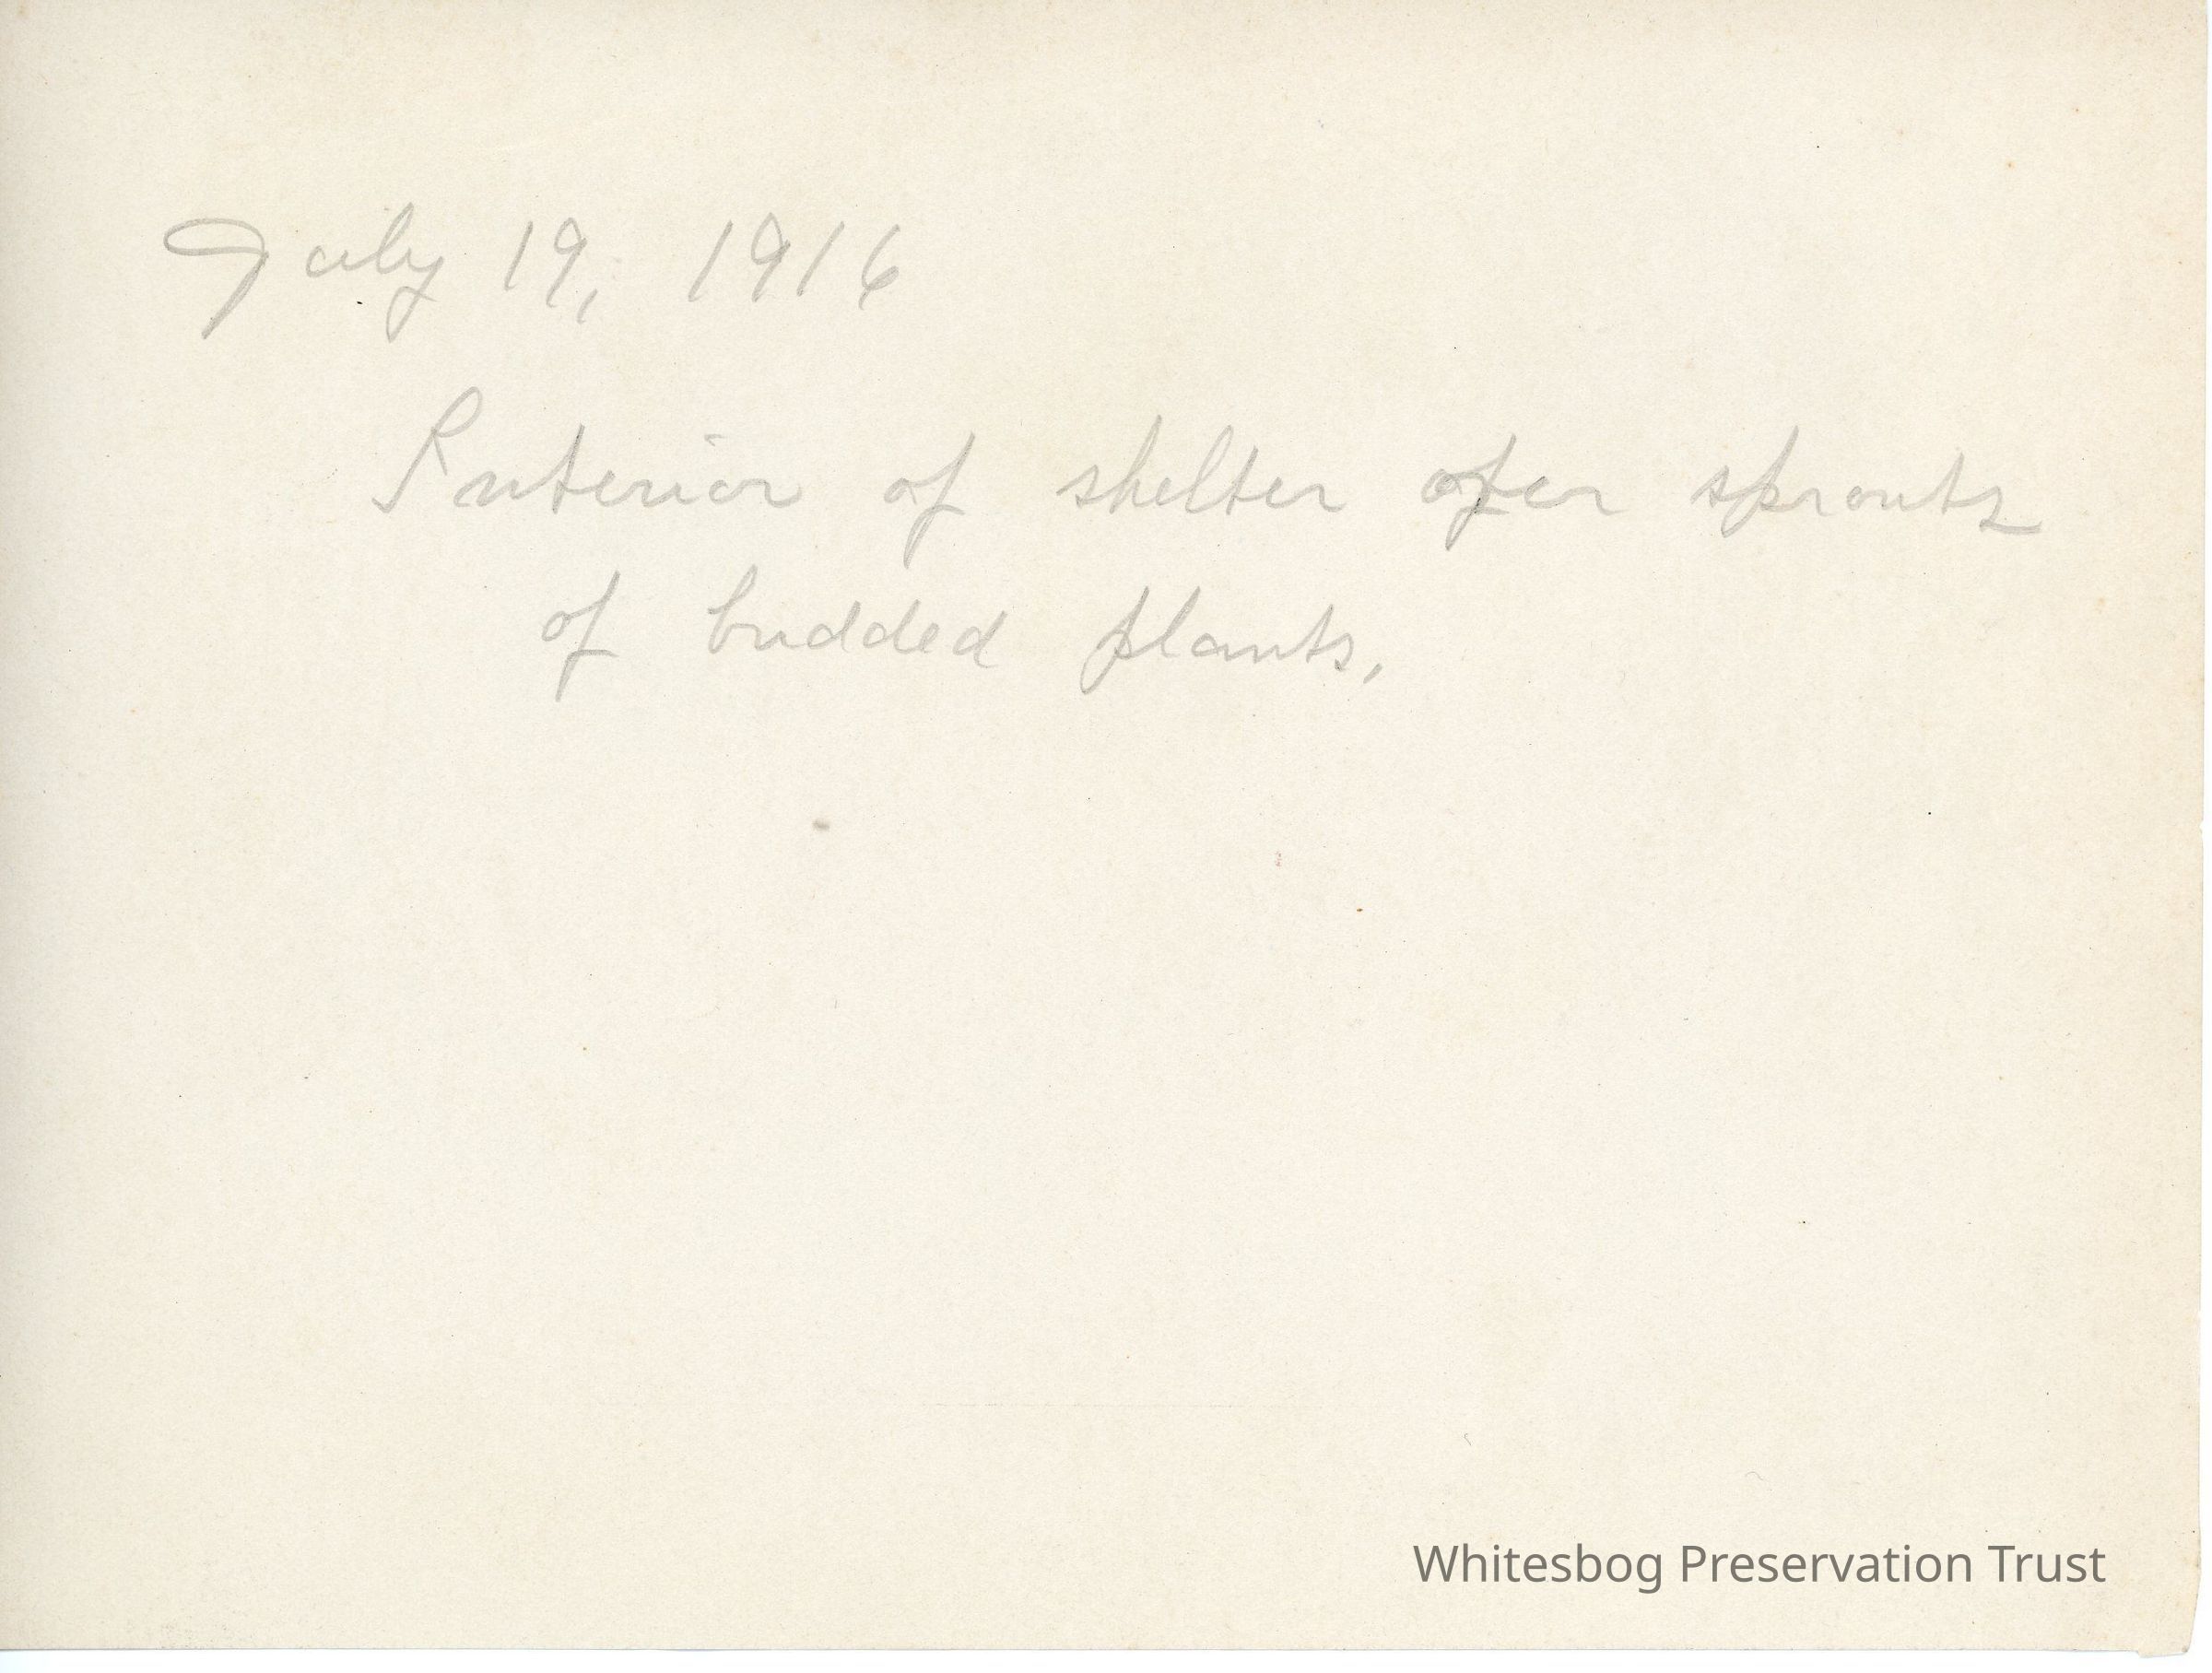 July 19, 1916
Interior of shelter over sprouts
of budded plants.
Whitesbog Preservation Trust